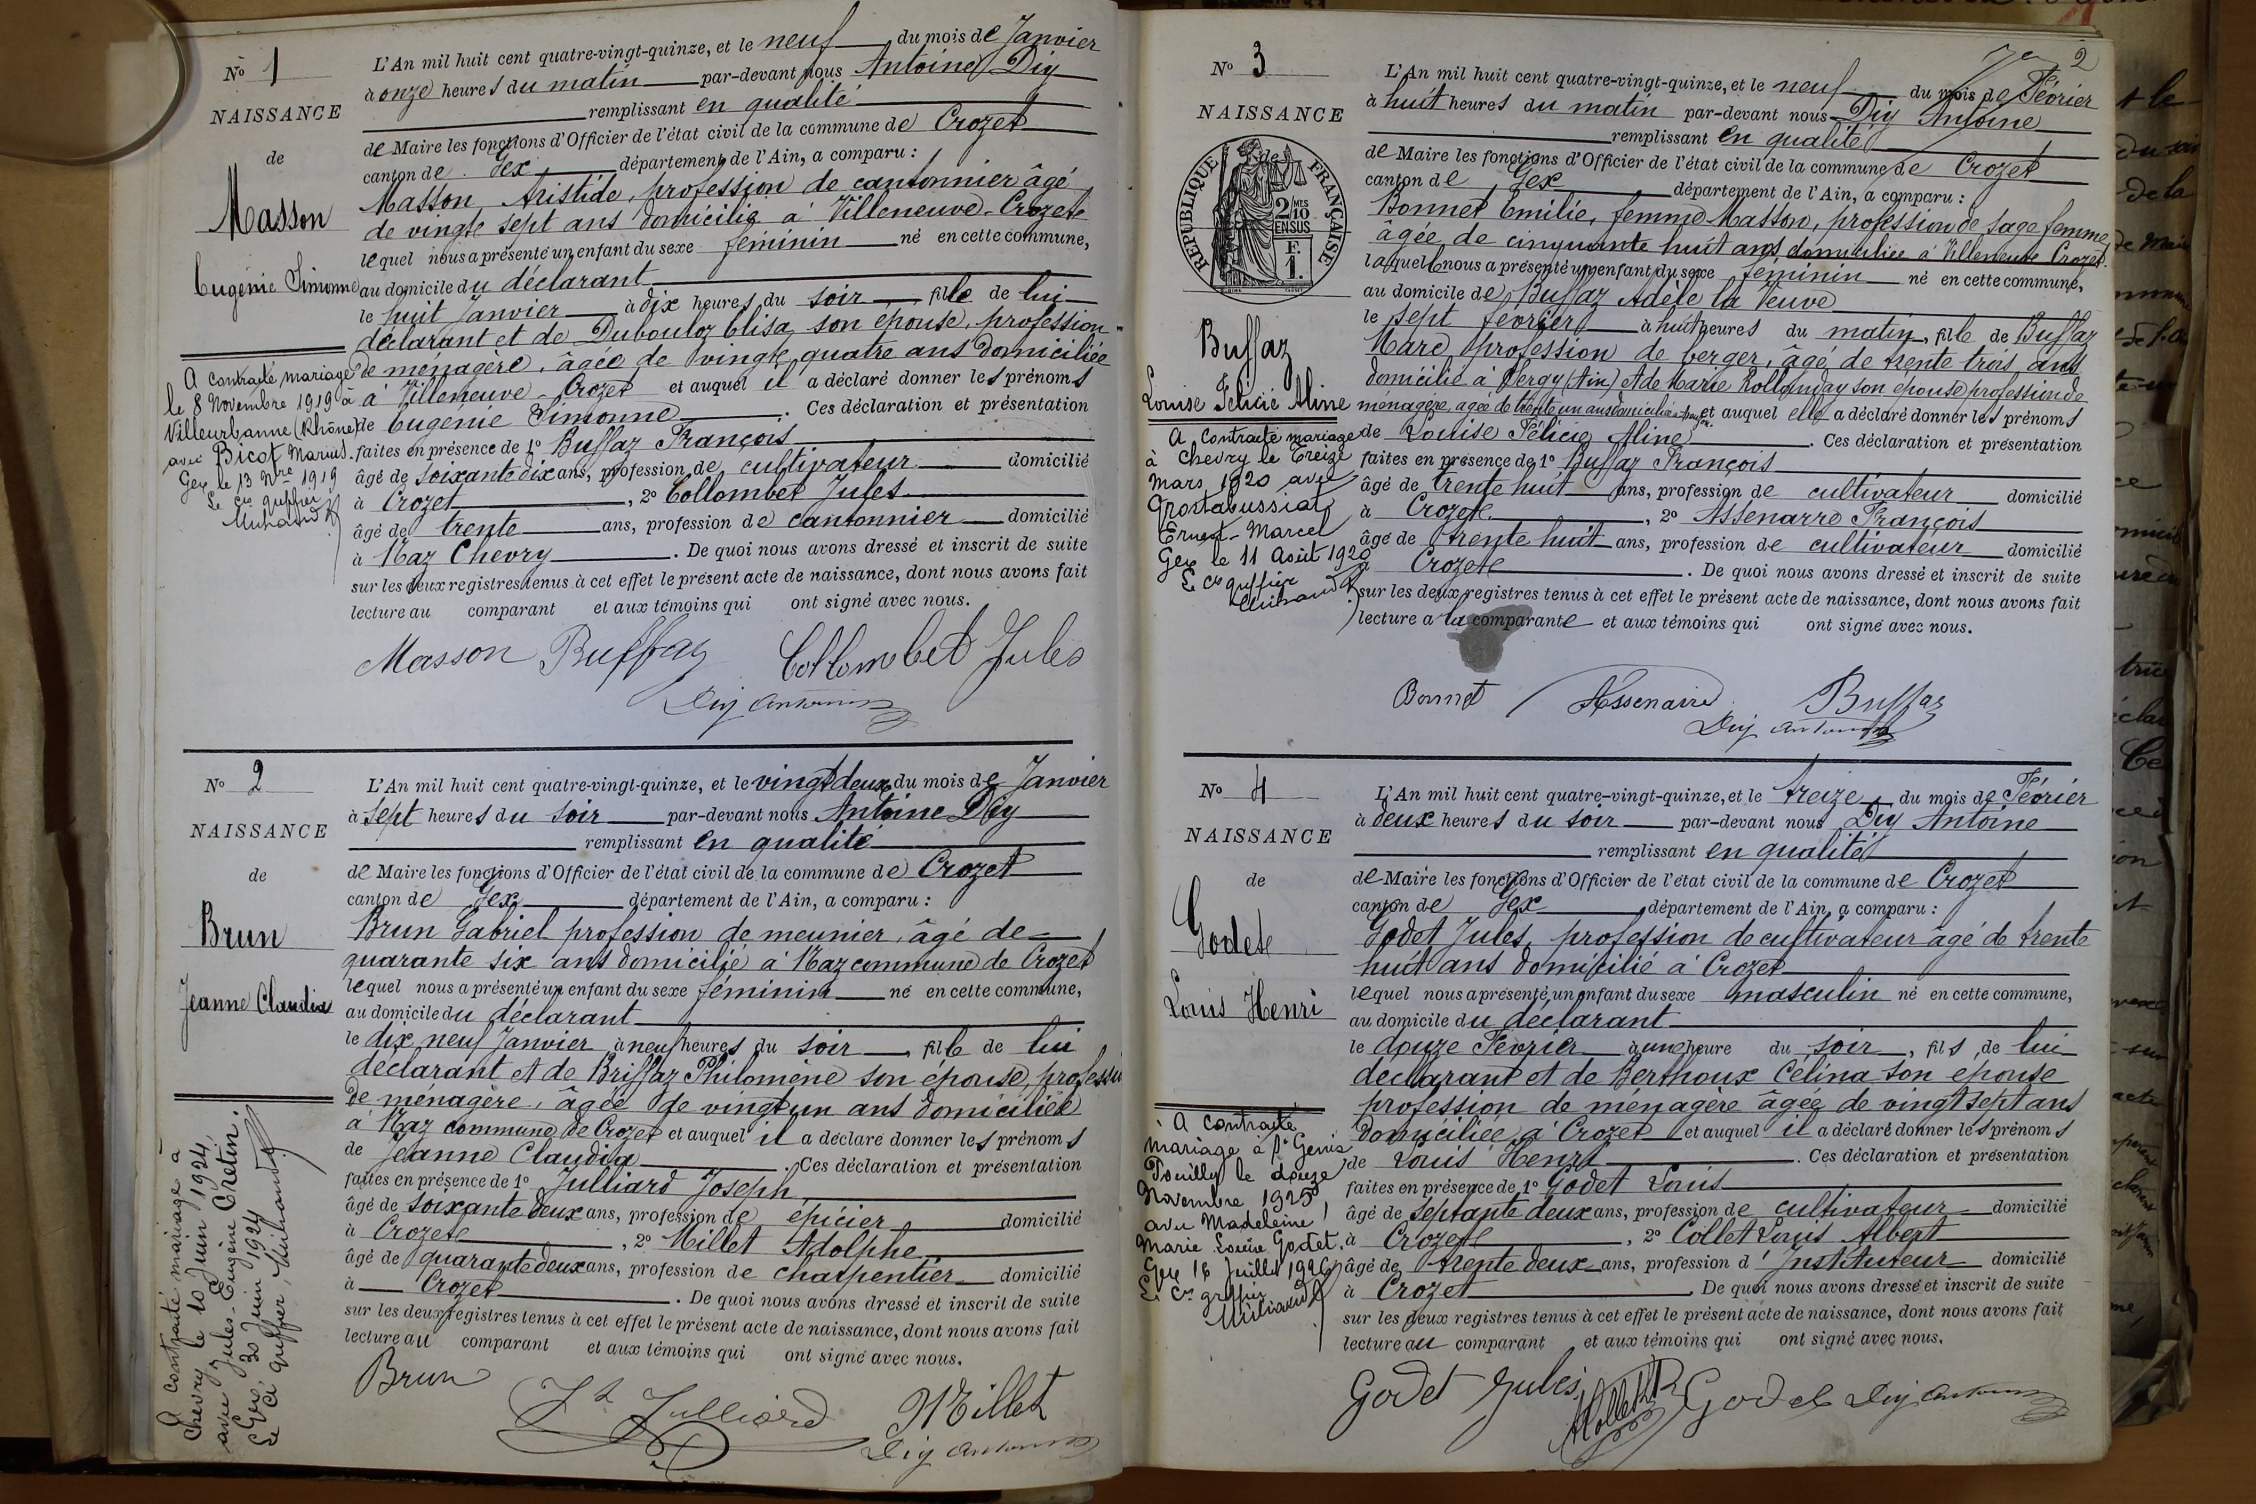 N° 1
NAISSANCE
de
Masson
Eugénie Simonne
A contracté mariage
le 8 Novembre 1919 à
Villeurbanne (Rhône)
avec Bicot Marius.
Gex le 13 Nbre 1919
Le Cis greffier
L'An mil huit cent quatre-vingt-quinze, et le neuf du mois de Janvier
à onze heures du matin par-devant nous Antoine Diy
remplissant en qualité
de Maire les fonctions d'Officier de l'état civil de la commune de Crozet
canton de Gex département de l'Ain, a comparu :
Masson Aristide, profession de cantonnier âgé
de vingt sept ans domicilié à Villeneuve-Crozet
lequel nous a présenté un enfant du sexe féminin né en cette commune,
au domicile du déclarant
le huit Janvier à dix heures du soir, fille de lui
déclarant et de Dubouloz Elisa son épouse, profession
de ménagère, âgée de vingt quatre ans domiciliée
à Villeneuve-Crozet et auquel il a déclaré donner les prénoms
de Eugénie Simonne. Ces déclaration et présentation
faites en présence de 1° Buffaz François
âgé de soixante dix ans, profession de cultivateur domicilié
à Crozet, 2° Collombet Jules
âgé de trente ans, profession de cantonnier domicilié
à Naz Chevry. De quoi nous avons dressé et inscrit de suite
sur les deux registres tenus à cet effet le présent acte de naissance, dont nous avons fait
lecture au comparant et aux témoins qui ont signé avec nous.
Masson Buffaz Collombet Jules
Diy Antoine
N° 2
NAISSANCE
de
Brun
Jeanne Claudia
A contracté mariage à
Chevry le 10 Juin 1924,
avec Jules-Eugène Cretin.
Gex, 30 Juin 1924
Le Cis greffier,
L'An mil huit cent quatre-vingt-quinze, et le vingt deux du mois de Janvier
à sept heures du soir par-devant nous Antoine Diy
remplissant en qualité
de Maire les fonctions d'Officier de l'état civil de la commune de Crozet
canton de Gex département de l'Ain, a comparu :
Brun Gabriel profession de meunier, âgé de
quarante six ans domicilié à Naz commune de Crozet
lequel nous a présenté un enfant du sexe féminin né en cette commune,
au domicile du déclarant
le dix neuf Janvier à neuf heures du soir, fille de lui
déclarant et de Briffaz Philomène son épouse, profession
de ménagère, âgée de vingt un ans domiciliée
à Naz commune de Crozet et auquel il a déclaré donner les prénoms
de Jeanne Claudia. Ces déclaration et présentation
faites en présence de 1° Julliard Joseph
âgé de soixante deux ans, profession de épicier domicilié
à Crozet, 2° Millet Adolphe
âgé de quarante deux ans, profession de charpentier domicilié
à Crozet. De quoi nous avons dressé et inscrit de suite
sur les deux registres tenus à cet effet le présent acte de naissance, dont nous avons fait
lecture au comparant et aux témoins qui ont signé avec nous.
Brun
Jh Julliard Millet
Diy Antoine
2
N° 3
NAISSANCE
de
RÉPUBLIQUE FRANÇAISE
2/10 MES
EN SUS
F.
1.
Buffaz
Louise Félicie Aline
A contracté mariage
à Chevry le Treize
Mars 1920 avec
Grostabussiat
Ernest-Marcel
Gex le 11 Août 1920
Le Cis greffier
L'An mil huit cent quatre-vingt-quinze, et le neuf du mois de Février
à huit heures du matin par-devant nous Diy Antoine
remplissant en qualité
de Maire les fonctions d'Officier de l'état civil de la commune de Crozet
canton de Gex département de l'Ain, a comparu :
Bonnet Emilie, femme Masson, profession de sage femme
âgée de cinquante huit ans, domiciliée à Villeneuve Crozet.
laquelle nous a présenté un enfant du sexe féminin né en cette commune,
au domicile de Buffaz Adèle la Veuve
le sept février à huit heures du matin, fille de Buffaz
Marc profession de berger, âgé de trente trois ans
domicilié à Sergy (Ain) et de Marie Rollanday son épouse profession de
ménagère, âgée de trente un ans domiciliée et auquel elle a déclaré donner les prénoms
de Louise Félicie Aline. Ces déclaration et présentation
faites en présence de 1° Buffaz François
âgé de trente huit ans, profession de cultivateur domicilié
à Crozet, 2° Assenarre François
âgé de trente huit ans, profession de cultivateur domicilié
à Crozet. De quoi nous avons dressé et inscrit de suite
sur les deux registres tenus à cet effet le présent acte de naissance, dont nous avons fait
lecture a la comparante et aux témoins qui ont signé avec nous.
Bonnet Assenaire Buffaz
Diy Antoine
N° 4
NAISSANCE
de
Godet
Louis Henri
A contracté
mariage à St Genis
Pouilly le douze
Novembre 1925
avec Madeleine
Marie Louise Godet.
Gex 16 Juillet 1926
Le Cis greffier
L'An mil huit cent quatre-vingt-quinze, et le treize du mois de Février
à deux heures du soir par-devant nous Diy Antoine
remplissant en qualité
de Maire les fonctions d'Officier de l'état civil de la commune de Crozet
canton de Gex département de l'Ain, a comparu :
Godet Jules, profession de cultivateur âgé de trente
huit ans domicilié à Crozet
lequel nous a présenté un enfant du sexe masculin né en cette commune,
au domicile du déclarant
le douze Février à une heure du soir, fils de lui
déclarant et de Berthoux Célina son épouse
profession de ménagère âgée de vingt sept ans
domiciliée à Crozet et auquel il a déclaré donner les prénoms
de Louis Henri. Ces déclaration et présentation
faites en présence de 1° Godet Louis
âgé de septante deux ans, profession de cultivateur domicilié
à Crozet, 2° Collet Louis Albert
âgé de trente deux ans, profession d'Instituteur domicilié
à Crozet. De quoi nous avons dressé et inscrit de suite
sur les deux registres tenus à cet effet le présent acte de naissance, dont nous avons fait
lecture au comparant et aux témoins qui ont signé avec nous.
Godet Jules Collet Godet Diy Antoine